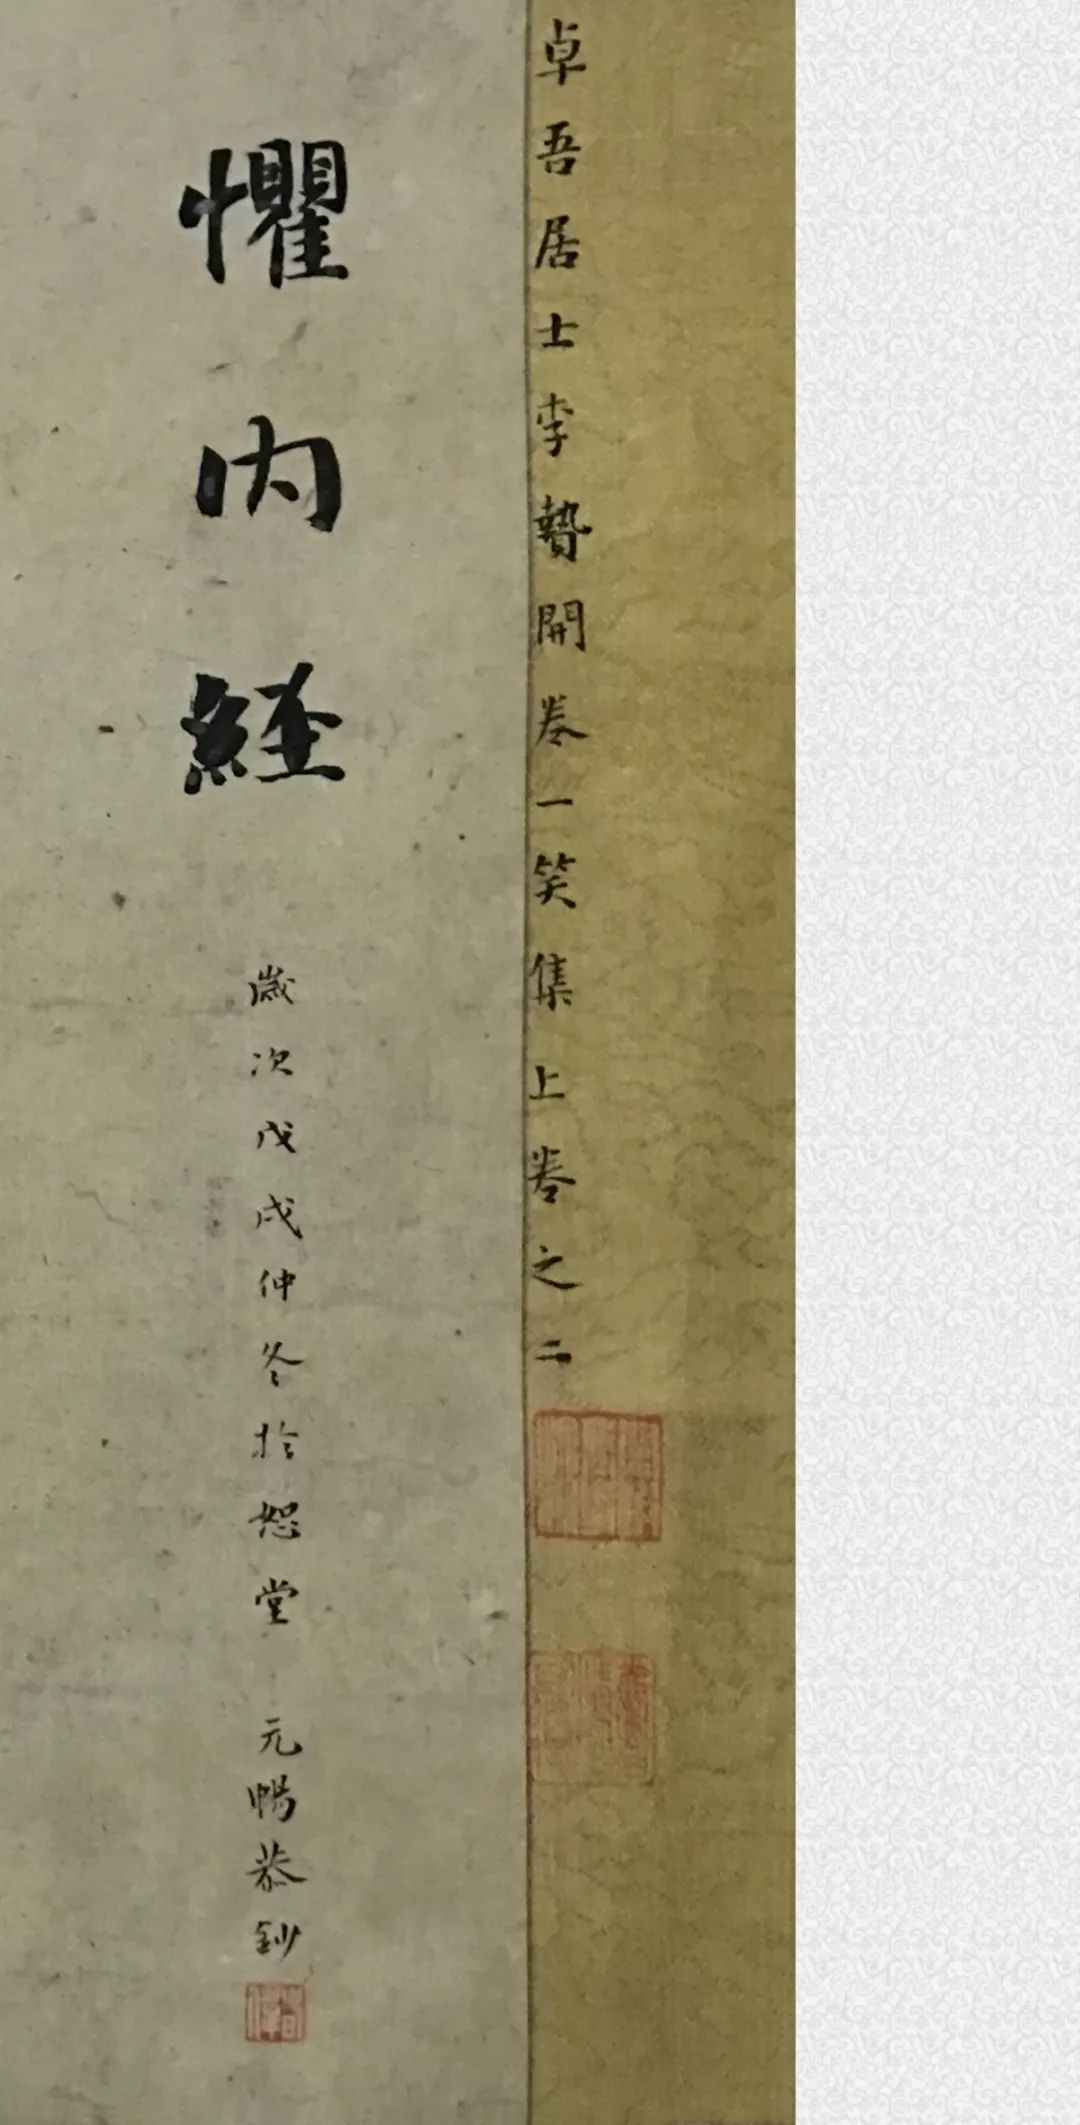 卓吾居士李贄開卷一笑集上卷之二
懼内經
歲次戊戌仲冬於恕堂 元暢恭鈔